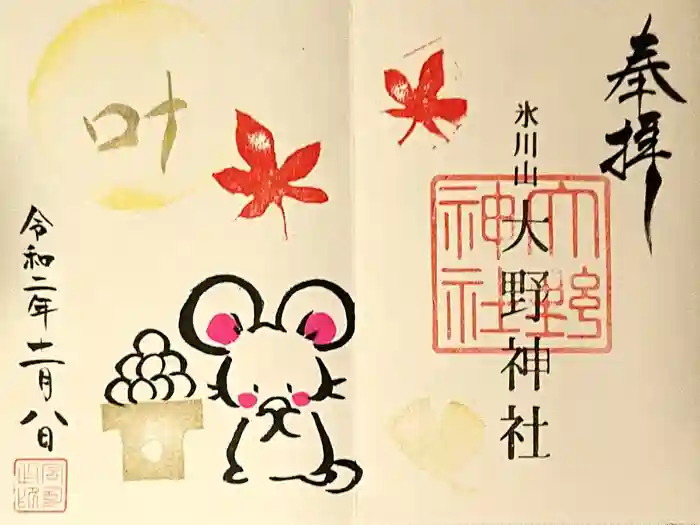 奉拝
氷川山
大野神社
大野
神社
叶
令和二年十一月八日